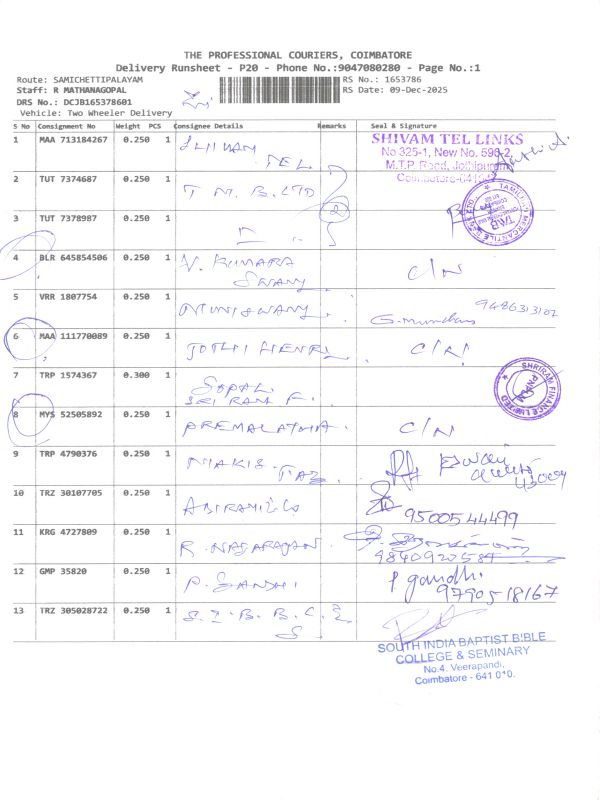 THE PROFESSIONAL COURIERS, COIMBATORE
Delivery Runsheet - P20 - Phone No.:9047080280 - Page No.:1
Route: SAMICHETTIPALAYAM
RS No.: 1653786
Staff: R MATHANAGOPAL
RS Date: 09-Dec-2025
DRS No.: DCJB165378601
Vehicle: Two Wheeler Delivery
S No Consignment No Weight PCS Consignee Details Remarks Seal & Signature
1 MAA 713184267 0.250 1 SHIVAM TEL
SHIVAM TEL LINKS
No 325-1, New No. 596-2,
M.T.P. Road, Jothipuram
Coimbatore-641047
2 TUT 7374687 0.250 1 T M. B. LTD
TAMILNAD MERCANTILE BANK LTD
3 TUT 7378987 0.250 1
2
4 BLR 645854506 0.250 1 V. KUMARA SWAMY C/N
5 VRR 1807754 0.250 1 MUNISWAMY G. 9486313102
6 MAA 111770089 0.250 1 JOTHI HENRY C/N
7 TRP 1574367 0.300 1 GOPAL SRI RAM F.
SHRIRAM FINANCE LIMITED
8 MYS 52505892 0.250 1 PREMALATHA. C/N
9 TRP 4790376 0.250 1
10 TRZ 30107705 0.250 1 ABIRAMI & Co 9500544499
11 KRG 4727809 0.250 1 R. NAGARAJAN. 9840920584
12 GMP 35820 0.250 1 P. GANDHI P gandhi. 9790518167
13 TRZ 305028722 0.250 1 S. I. B. B. C. & S
SOUTH INDIA BAPTIST BIBLE
COLLEGE & SEMINARY
No.4. Veerapandi,
Coimbatore - 641 0